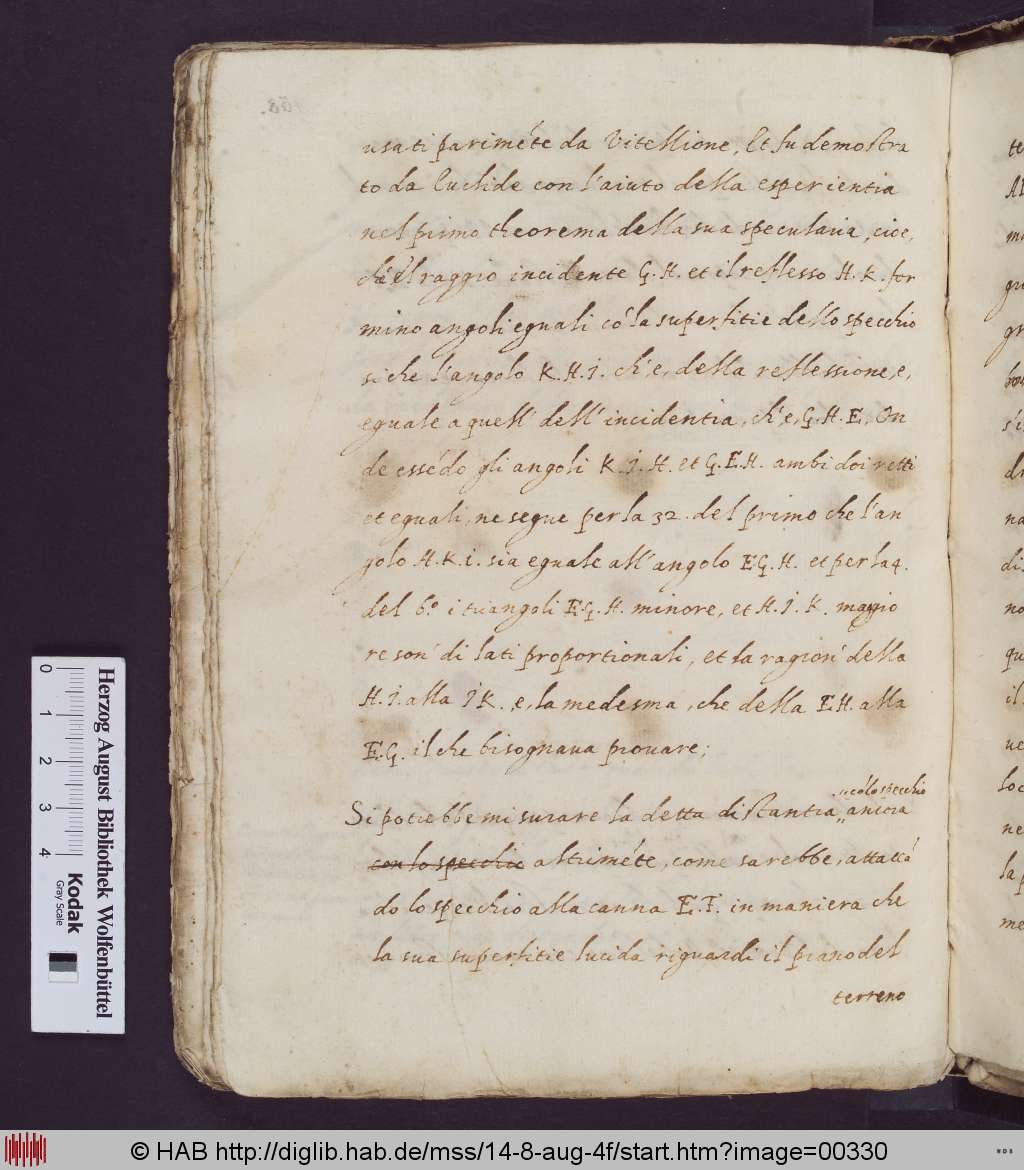 usati parimẽte da Vitellione, Et fu demostra
to da Euclide con l'aiuto della esperientia
nel primo theorema della sua specularia, cioe,
che'l raggio incidente G. H. et il reflesso H. K. for
mino angoli eguali cõ la superfitie dello specchio
si che l'angolo K. H. I. ch'e, della reflessione, e,
eguale a quell' dell' incidentia, ch'e, G. H. E, On
de essẽdo gli angoli K. I. H. et G. E. H. ambi doi retti
et eguali, ne segue per la 32. del primo che l'an
golo H. K. i. sia eguale all' angolo E G. H. et per la 4.
del 6.º i triangoli E. G. H. minore, et H. I. K. maggio
re son' di lati proportionali, et la ragion' della
H. I. alla I K. e, la medesma, che della E H. alla
E. G. il che bisognaua prouare;
cõ lo specchio
Si potrebbe misurare la detta distantia ,, ancora
con lo specchio altrimẽte, come sarebbe, attaccã
do lo specchio alla canna E. F. in maniera che
la sua superfitie lucida riguardi il piano del
terreno
Herzog August Bibliothek Wolfenbüttel
Kodak
Gray Scale
0 1 2 3 4
© HAB http://diglib.hab.de/mss/14-8-aug-4f/start.htm?image=00330